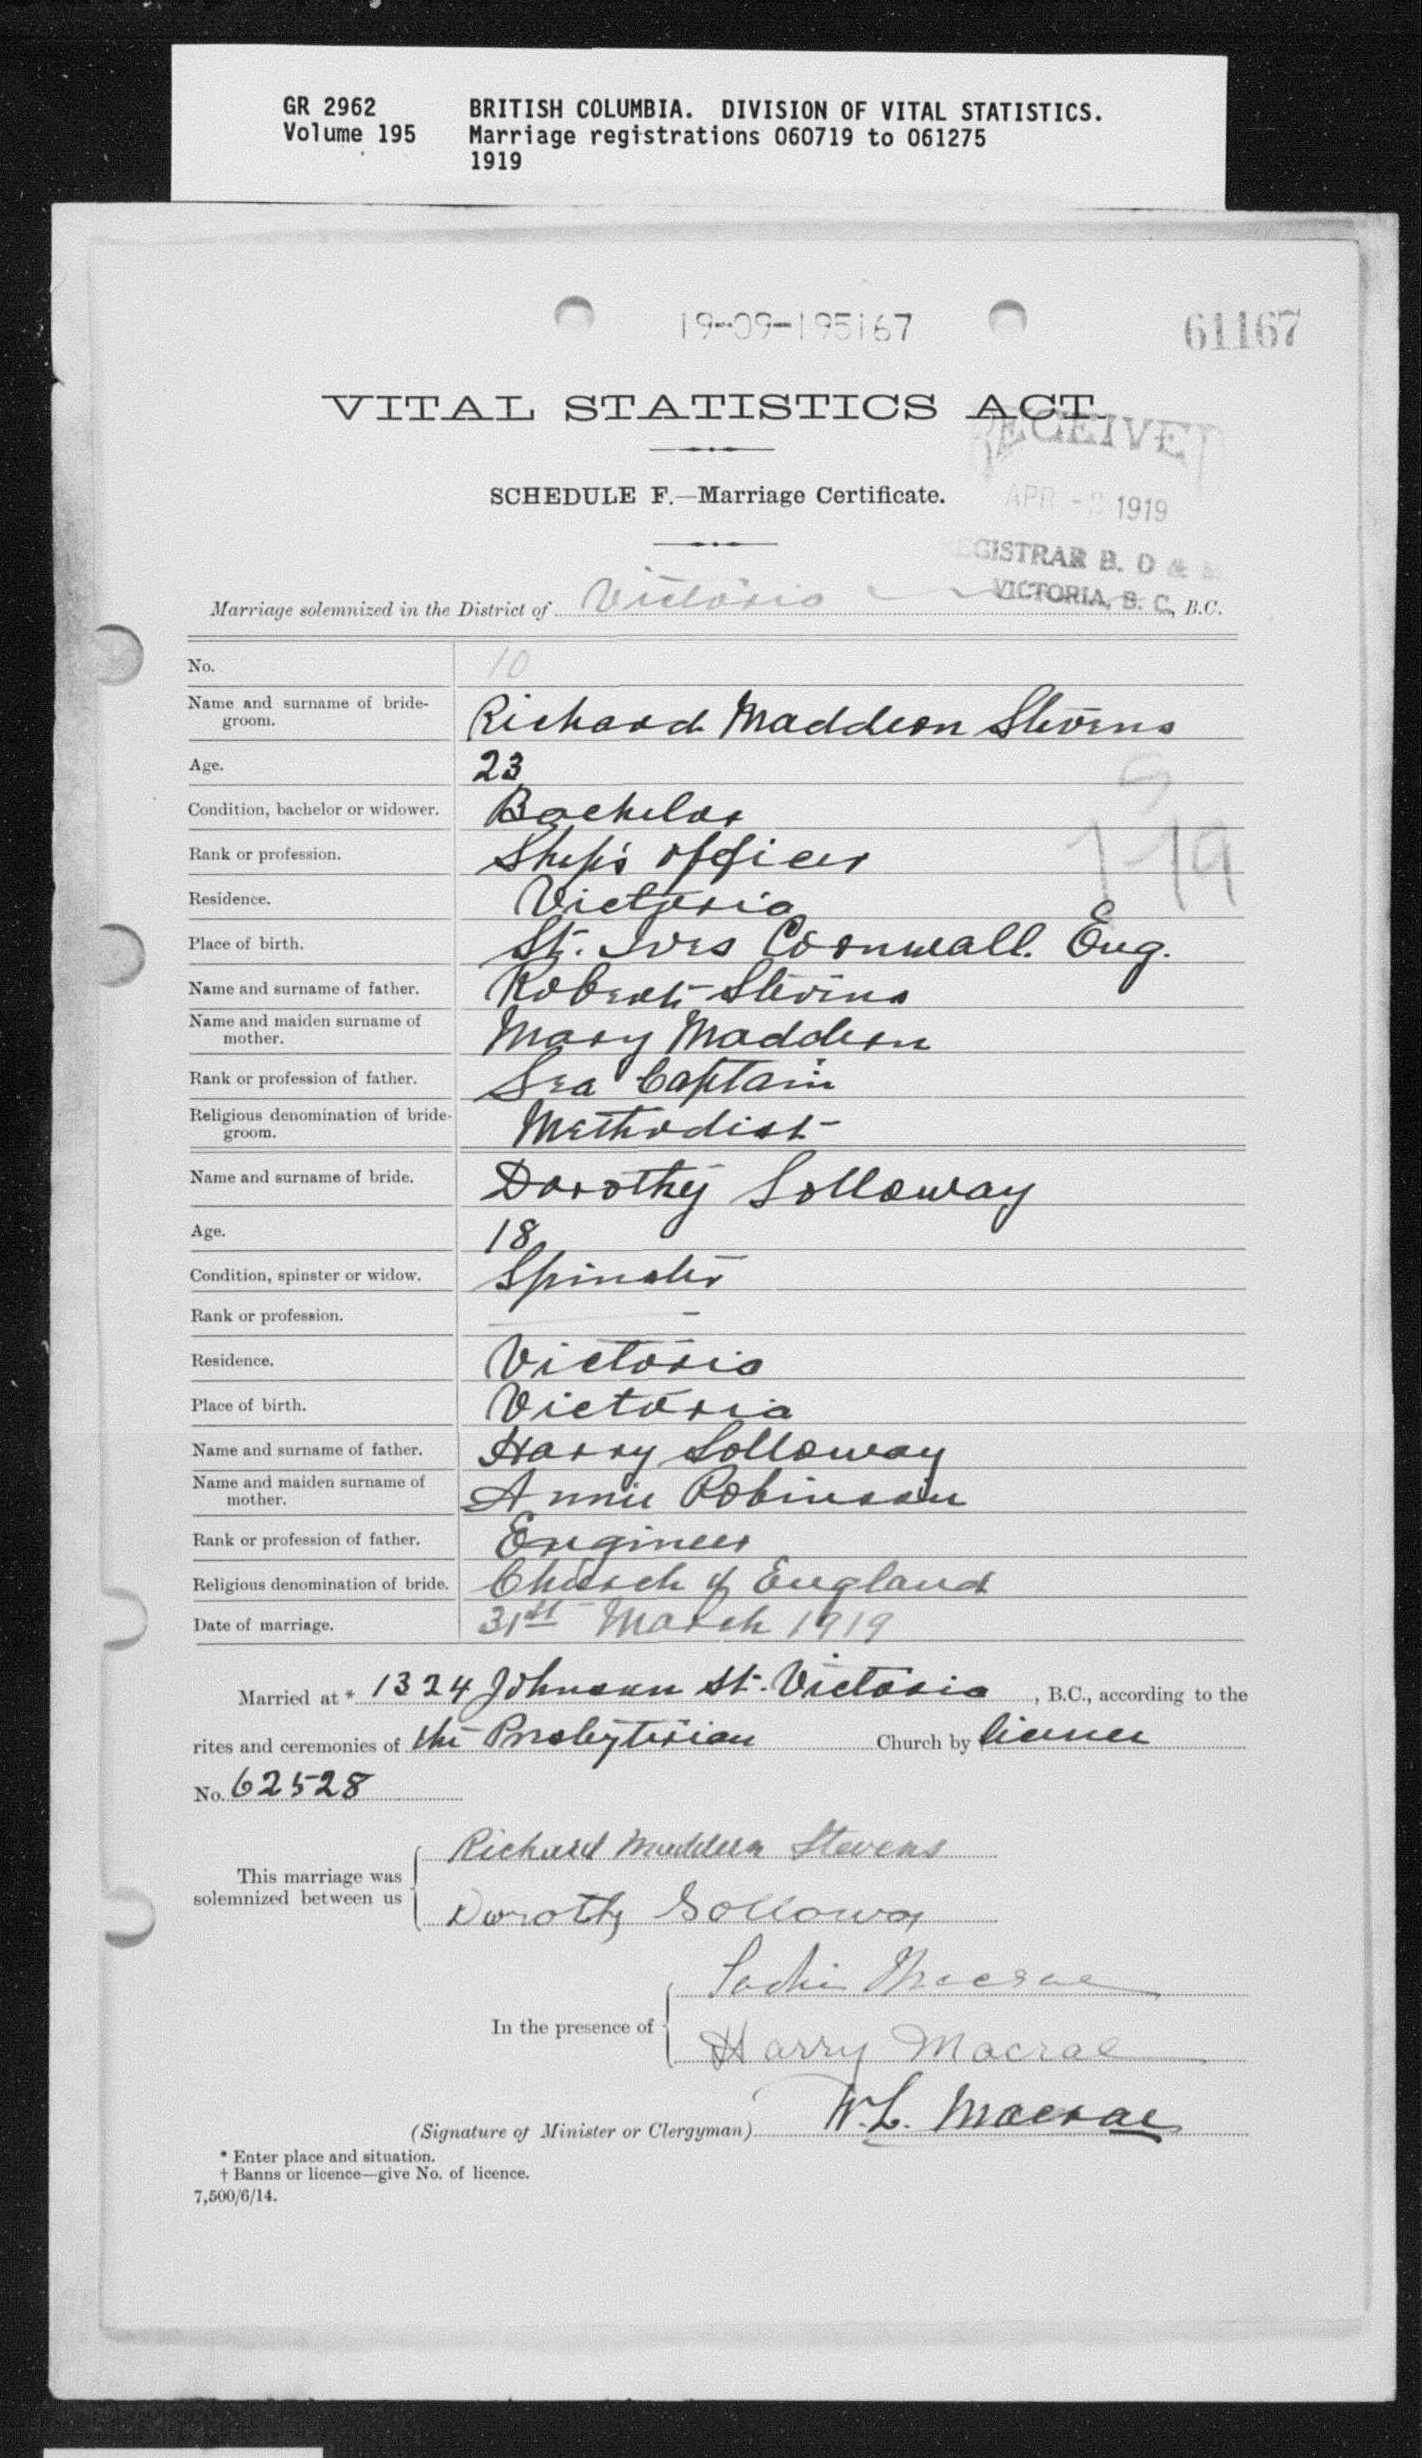 GR 2962 BRITISH COLUMBIA. DIVISION OF VITAL STATISTICS.
Volume 195 Marriage registrations 060719 to 061275
1919
19-09-195167
61167
VITAL STATISTICS ACT.
RECEIVED
SCHEDULE F.—Marriage Certificate.
APR - 1919
REGISTRAR B. D &
VICTORIA, B. C.
Marriage solemnized in the District of Victoria, B.C.
No. 10
Name and surname of bride-groom. Richard Maddern Stevens
Age. 23
Condition, bachelor or widower. Bachelor
Rank or profession. Ship's officer
Residence. Victoria
Place of birth. St. Ives Cornwall. Eng.
Name and surname of father. Robert Stevens
Name and maiden surname of mother. Mary Maddern
Rank or profession of father. Sea Captain
Religious denomination of bride-groom. Methodist
Name and surname of bride. Dorothy Solloway
Age. 18
Condition, spinster or widow. Spinster
Rank or profession. —
Residence. Victoria
Place of birth. Victoria
Name and surname of father. Harry Solloway
Name and maiden surname of mother. Annie Robinson
Rank or profession of father. Engineer
Religious denomination of bride. Church of England
Date of marriage. 31st March 1919
Married at * 1324 Johnson St. Victoria, B.C., according to the
rites and ceremonies of the Presbyterian Church by licence
No. 62528
This marriage was solemnized between us
Richard Maddern Stevens
Dorothy Solloway
In the presence of
Macrae
Harry Macrae
(Signature of Minister or Clergyman) W. L. Macrae
* Enter place and situation.
† Banns or licence—give No. of licence.
7,500/6/14.